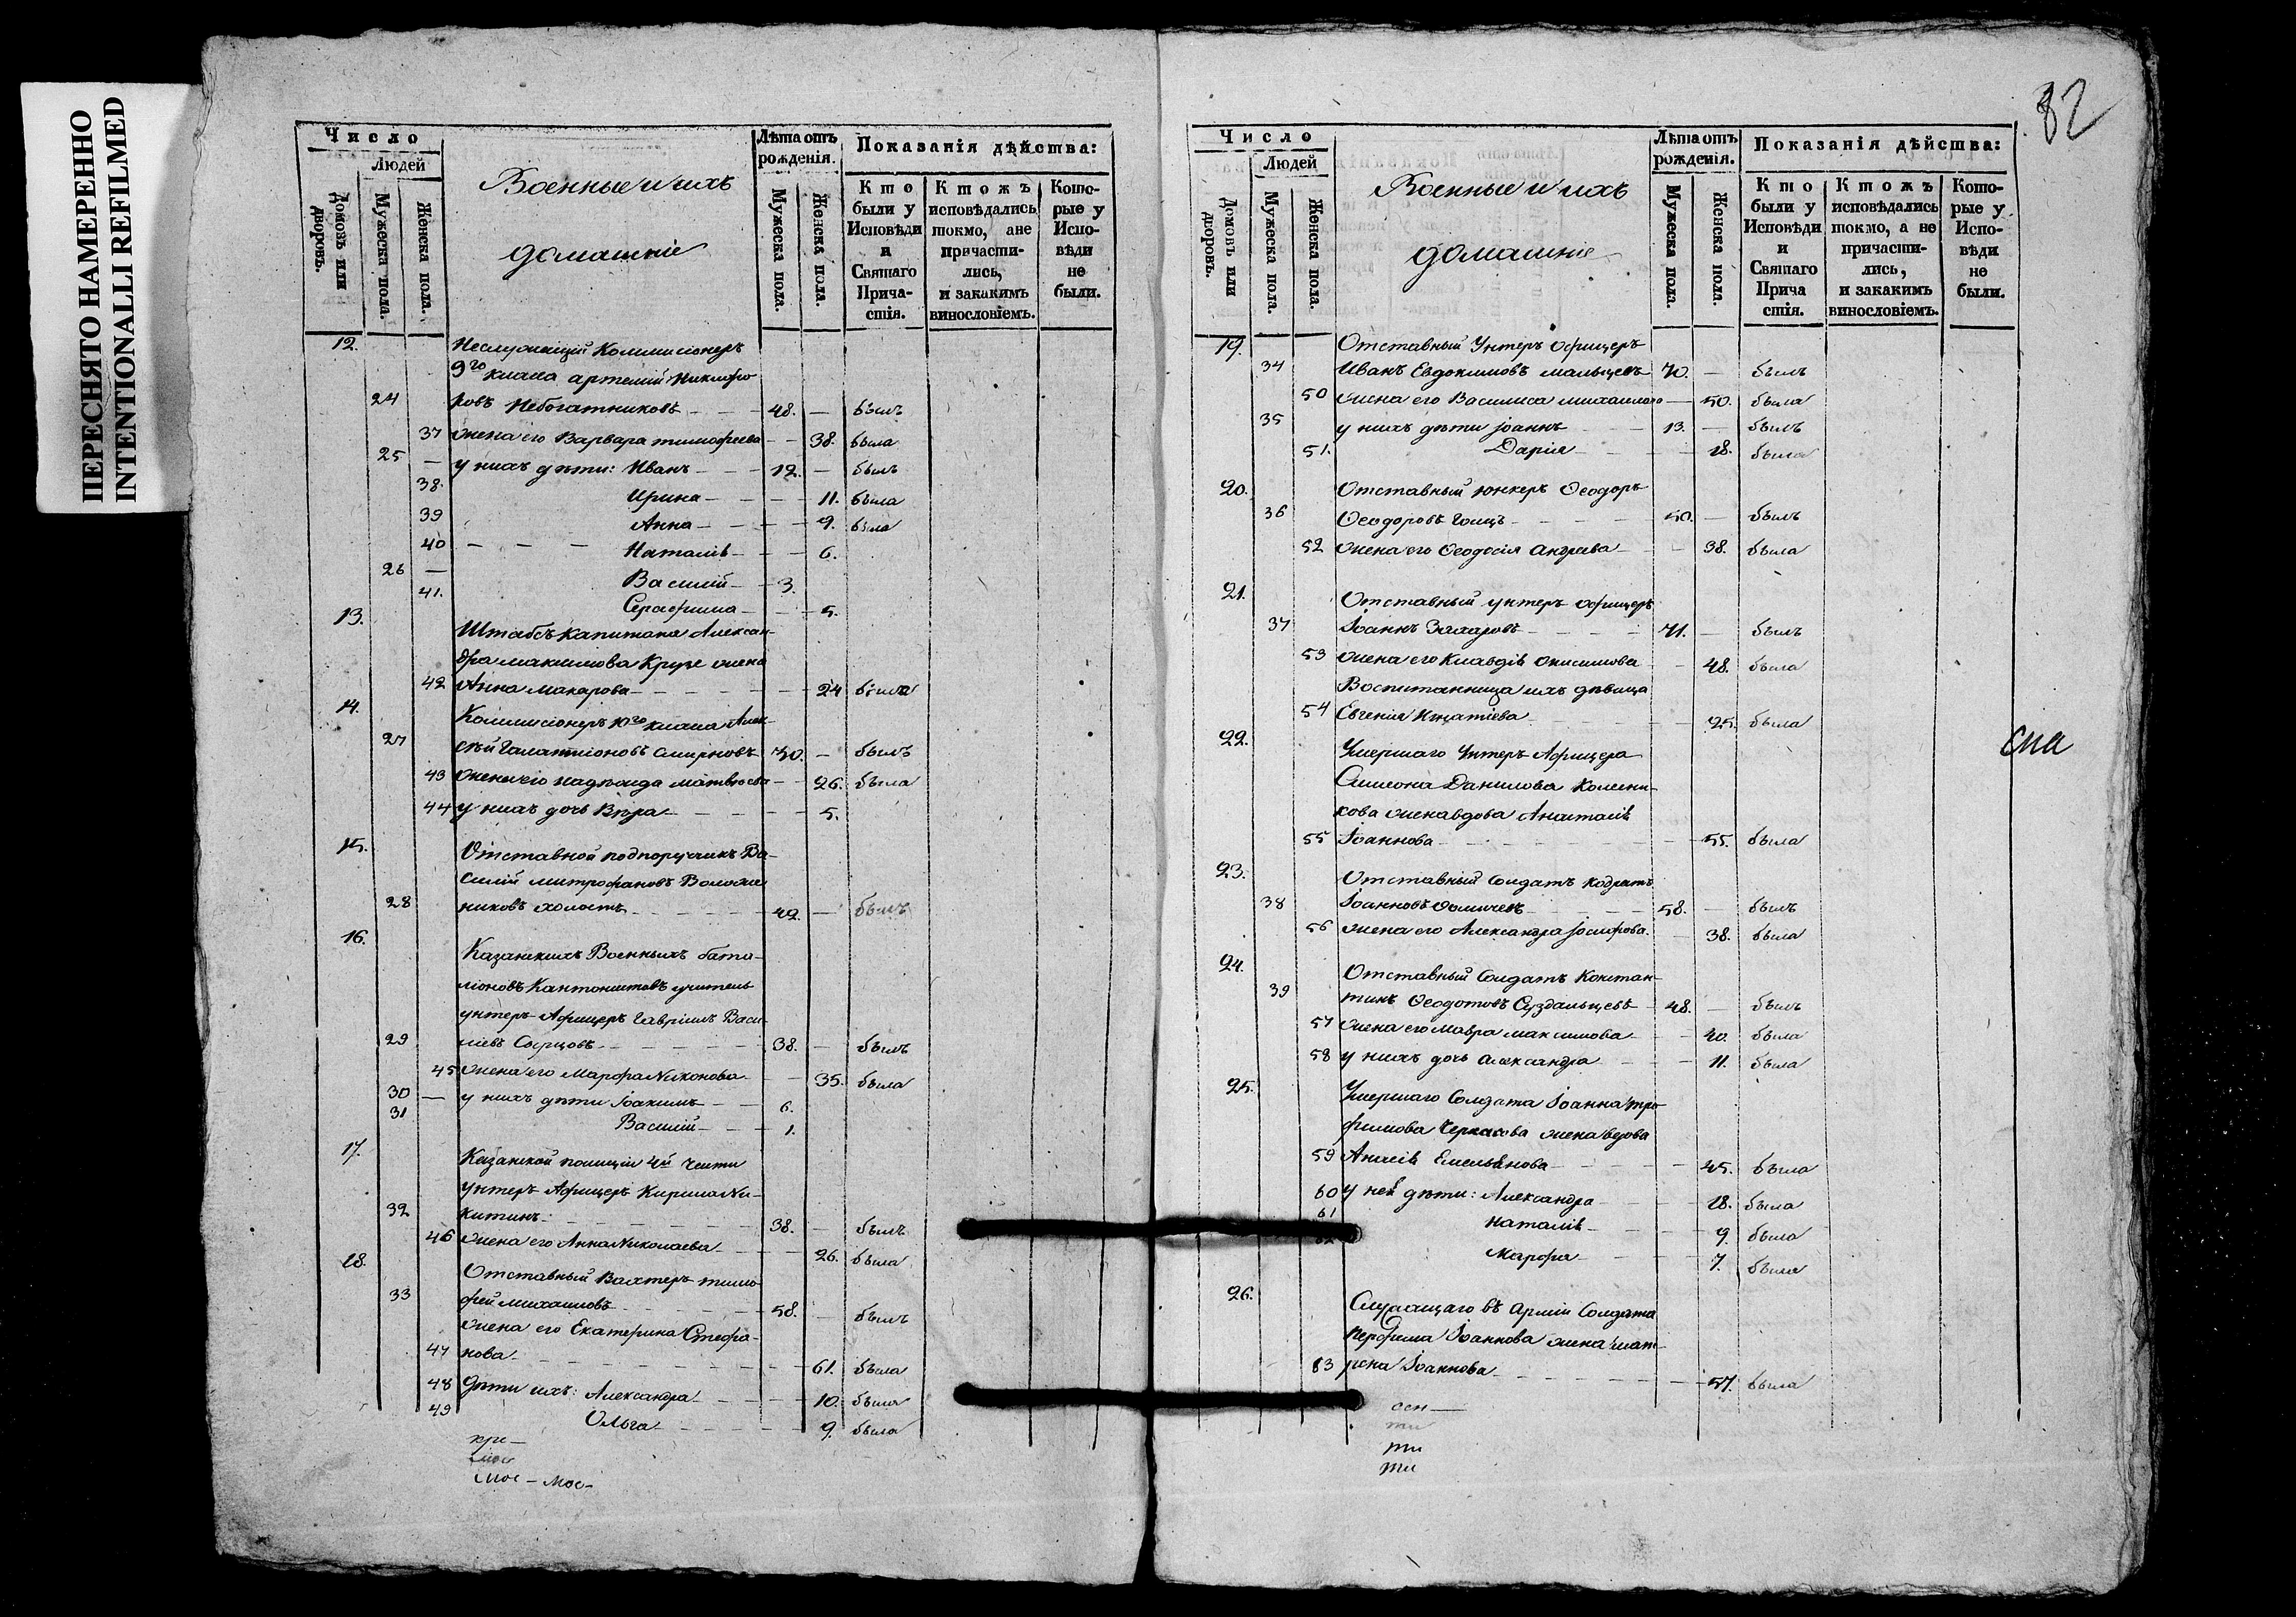 ПЕРЕСНЯТО НАМЕРЕННО
INTENTIONALLI REFILMED
Число
Людей
Домовъ или дворовъ.
Мужеска пола.
Женска пола.
Военные и ихъ
домашніе
Лѣта отъ рожденія.
Мужеска пола.
Женска пола.
Показанія дѣйства:
Кто были у Исповѣди и Святаго Прича-стія.
Ктожъ исповѣдались токмо, а не причасти-лись, и закакимъ винословіемъ.
Кото-рые у Испо-вѣди не были.
12. Неслужащій Коммисіонеръ
9го класса Артемій Никифо
24 ровъ Небогатниковъ 48. — былъ
37 жена его Варвара Тимофеева 38. была
25 — у нихъ дѣти: Иванъ 12. — былъ
38. Ирина 11. была
39 Анна 9. была
40 Наталія 6.
26 — Василій 3.
41. Серафима 5.
13. Штабсъ капитана Алексан-
дра Максимова Крузе жена
42 Анна Макарова 24 была
14. Коммисіонеръ 10го класса Алек-
27 сѣй Галактіоновъ Смирновъ 30. — былъ
43 жена его Надежда Матвѣева 26. была
44 у нихъ дочь Вѣра 5.
15. Отставной подпоручикъ Ва-
силій Митрофановъ Воложе
28 никовъ холостъ 42. — былъ
16. Казанскихъ Военныхъ бата-
ліоновъ Кантонистовъ учитель
унтеръ Афицеръ Гавріилъ Васи-
29 ліевъ 38. — былъ
45 жена его Марфа Никонова 35. была
30 — у нихъ дѣти Іоакимъ 6.
31 Василій 1.
17. Казанской полиціи 4й части
унтеръ Афицеръ Кирила Ни-
32 китинъ 38. — былъ
46 жена его Анна Николаева 26. была
18. Отставный Вахтеръ Тимо
33 фей Михаиловъ 58. — былъ
жена его Екатерина Стефа-
47 нова 61. была
48 Дѣти ихъ: Александра 10. была
49 Ольга 9. была
мос-
82
Число
Людей
Домовъ или дворовъ.
Мужеска пола.
Женска пола.
Военные и ихъ
домашніе
Лѣта отъ рожденія.
Мужеска пола.
Женска пола.
Показанія дѣйства:
Кто были у Исповѣди и Святаго Прича стія.
Ктожъ исповѣдались токмо, а не причасти-лись, и закакимъ винословіемъ.
Кото-рые у Испо-вѣди не были.
19. Отставный Унтеръ Офицеръ
34 Иванъ Евдокимовъ Мальцевъ 70. — былъ
50 жена его Василиса Михаилова — 50. была
35 у нихъ дѣти Іоаннъ 13. — былъ
51. Дарія 18. была
20. Отставный юнкеръ Ѳеодоръ
36 Ѳеодоровъ 50. — былъ
52 жена его Ѳеодосія Андреева 38. была
21. Отставный унтеръ офицеръ
37 Іоаннъ Захаровъ 71. — былъ
53 жена его Клавдія Онисимова 48. была
Воспитанница ихъ дѣвица
54 Евгенія Игнатіева 25. была
22. Умершаго Унтеръ Афицера
Симеона Данилова Колесни-
кова жена вдова Анастасія
55 Іоаннова 55. была
сла
23. Отставный Солдатъ Кодратъ
38 Іоанновъ 58. — былъ
56 жена его Александра Іосифова 38. была
24. Отставный Солдатъ Констан-
39 тинъ Ѳеодотовъ Суздальцевъ 48. — былъ
57 жена его Мавра Максимова 40. была
58 у нихъ дочь Александра 11. была
25. Умершаго Солдата Іоанна Тро
фимова Черкасова жена вдова
59 Анисія Емельянова 45. была
60 у ней дѣти: Александра 18. была
61 Наталія 9. была
Марфа 7. была
26. Служащаго въ Арміи Солдата
Перфила Іоаннова жена Мат-
63 рена Іоаннова 57. была
ти
ти
ти